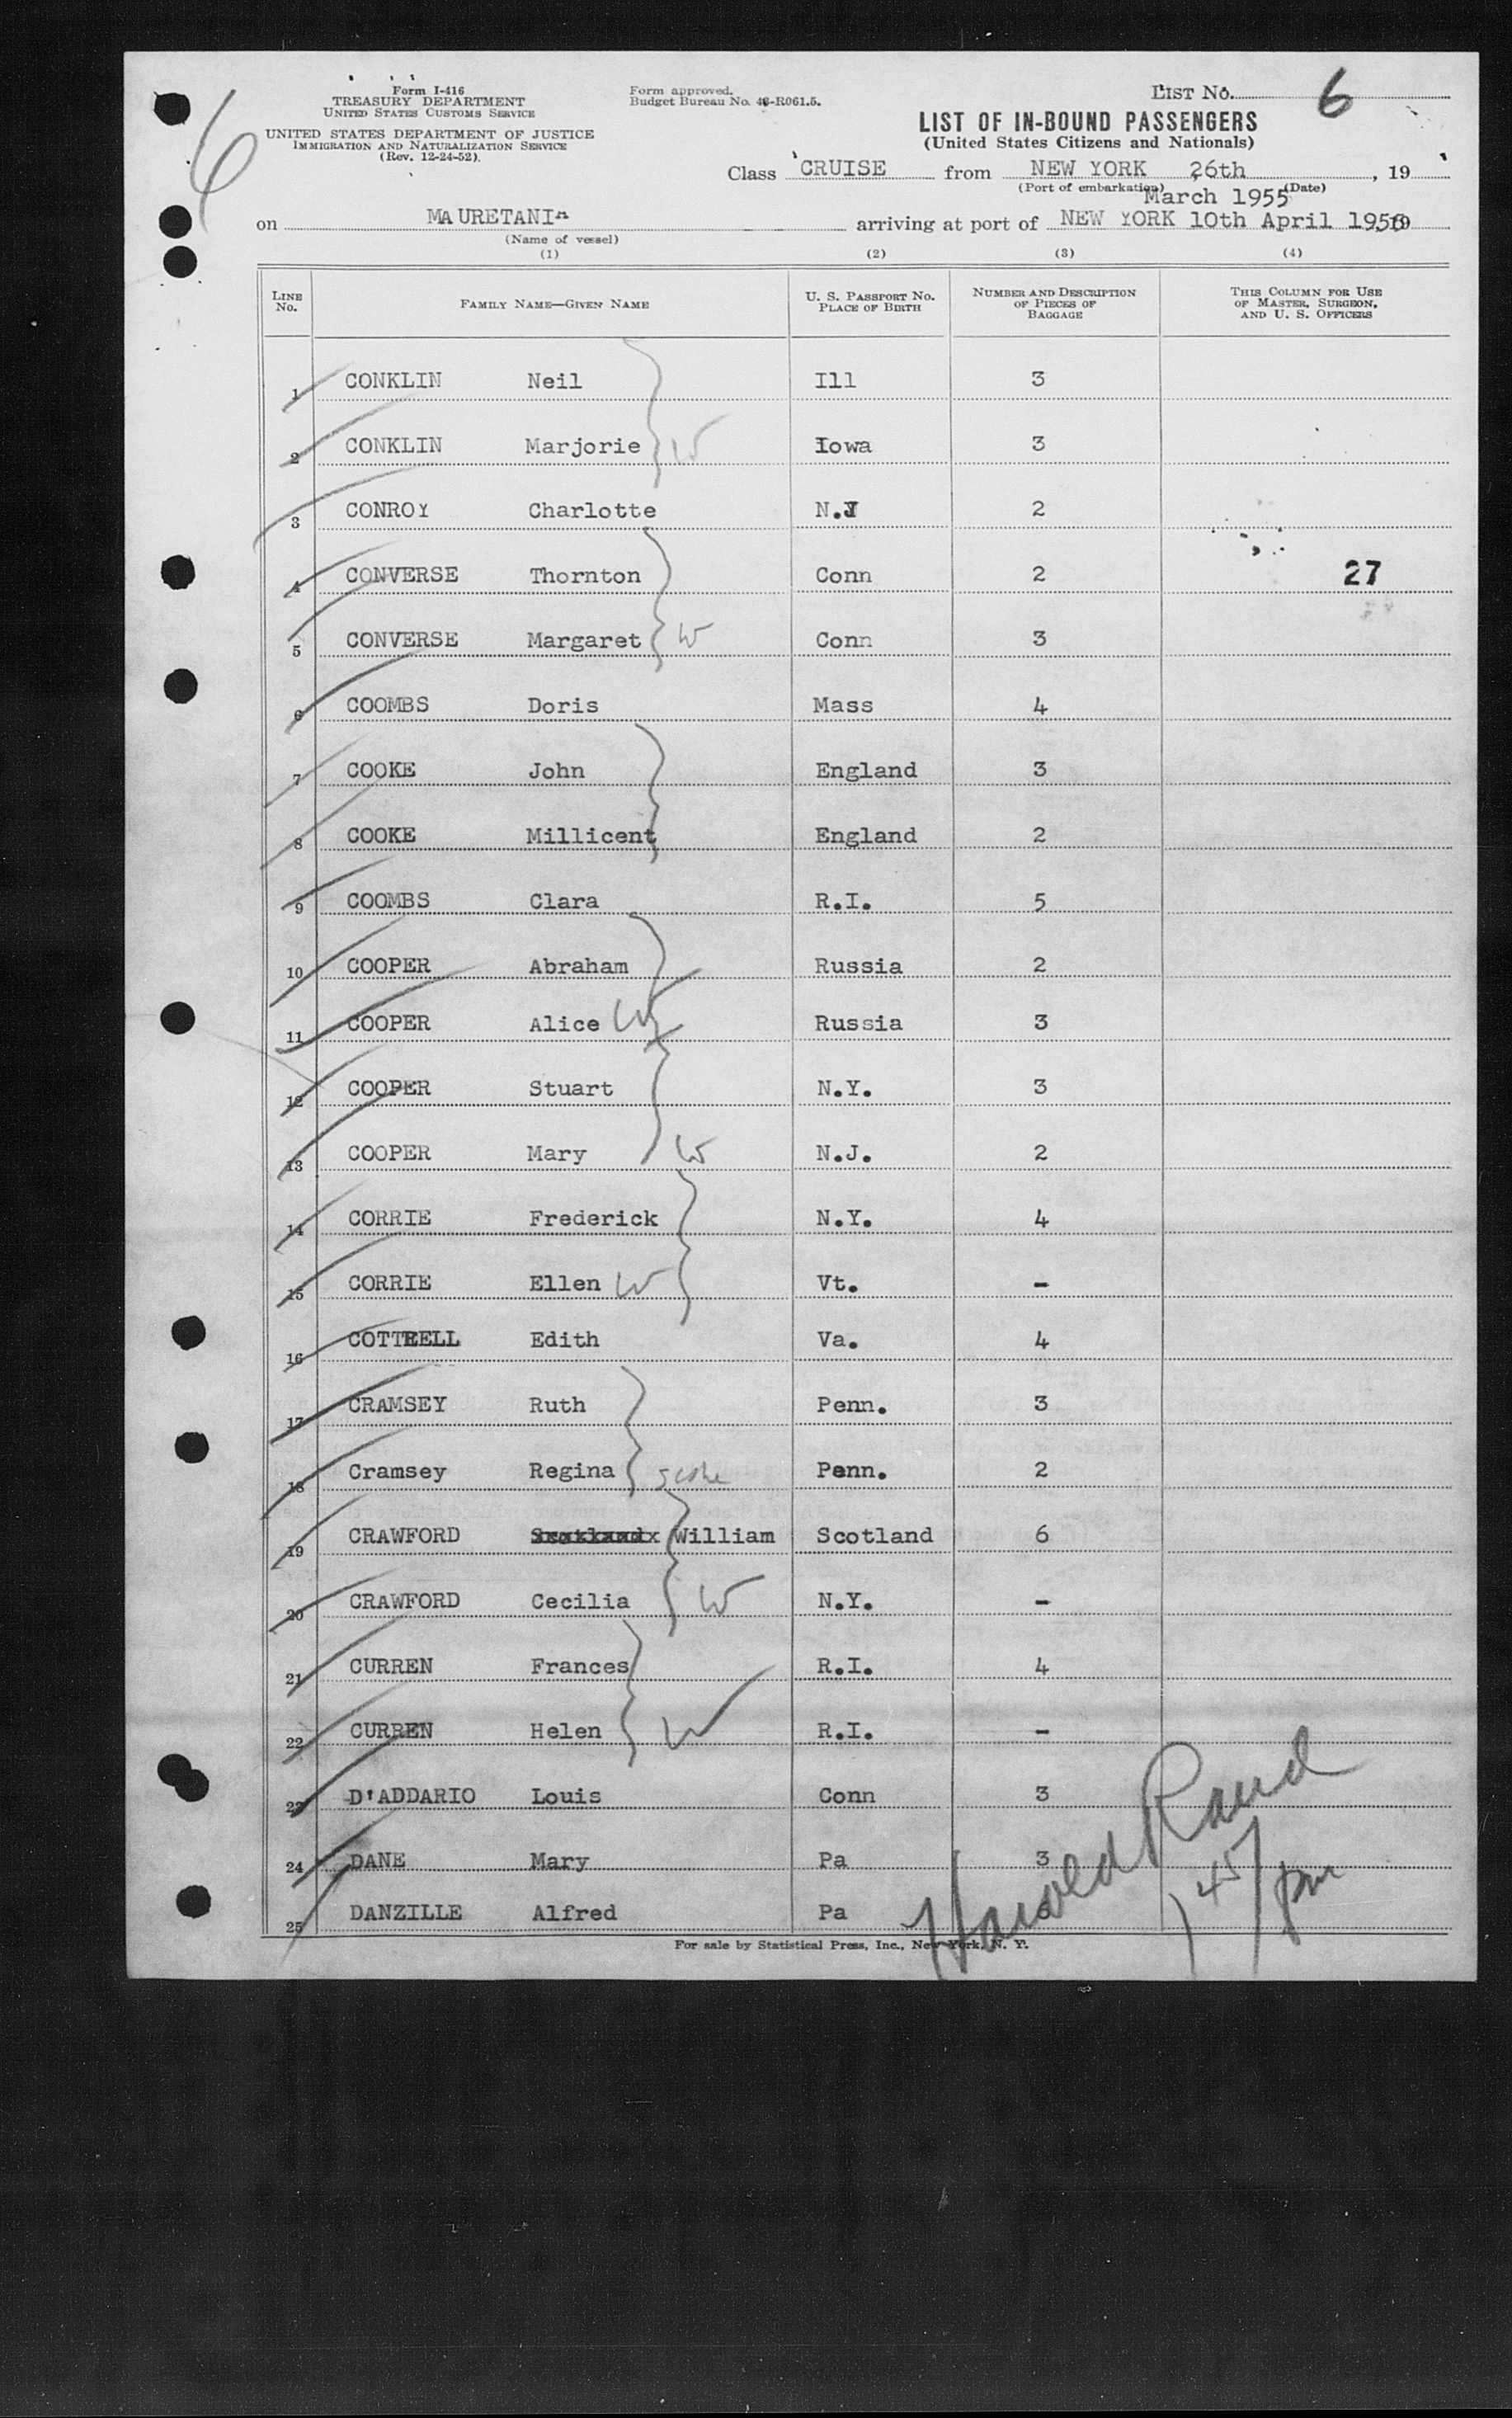 Form I-416
TREASURY DEPARTMENT
UNITED STATES CUSTOMS SERVICE
UNITED STATES DEPARTMENT OF JUSTICE
IMMIGRATION AND NATURALIZATION SERVICE
(Rev. 12-24-52)
Form approved.
Budget Bureau No. 43-R061.5.
LIST NO. 6
6
LIST OF IN-BOUND PASSENGERS
(United States Citizens and Nationals)
Class CRUISE from NEW YORK 26th , 19
(Port of embarkation) (Date)
March 1955
on MAURETANIA arriving at port of NEW YORK 10th April 1955 19
(Name of vessel)
(1) (2) (3) (4)
LINE NO. FAMILY NAME—GIVEN NAME U. S. PASSPORT NO. PLACE OF BIRTH NUMBER AND DESCRIPTION OF PIECES OF BAGGAGE THIS COLUMN FOR USE OF MASTER, SURGEON, AND U. S. OFFICERS
1 CONKLIN Neil Ill 3
2 CONKLIN Marjorie W Iowa 3
3 CONROY Charlotte N.J 2
4 CONVERSE Thornton Conn 2 27
5 CONVERSE Margaret W Conn 3
6 COOMBS Doris Mass 4
7 COOKE John England 3
8 COOKE Millicent England 2
9 COOMBS Clara R.I. 5
10 COOPER Abraham Russia 2
11 COOPER Alice W Russia 3
12 COOPER Stuart N.Y. 3
13 COOPER Mary W N.J. 2
14 CORRIE Frederick N.Y. 4
15 CORRIE Ellen W Vt. -
16 COTTRELL Edith Va. 4
17 CRAMSEY Ruth Penn. 3
18 Cramsey Regina Penn. 2
19 CRAWFORD William Scotland 6
20 CRAWFORD Cecilia W N.Y. -
21 CURREN Frances R.I. 4
22 CURREN Helen W R.I. -
23 D'ADDARIO Louis Conn 3
24 DANE Mary Pa 3
25 DANZILLE Alfred Pa
Harold Rand
145 pm
For sale by Statistical Press, Inc., New York, N. Y.